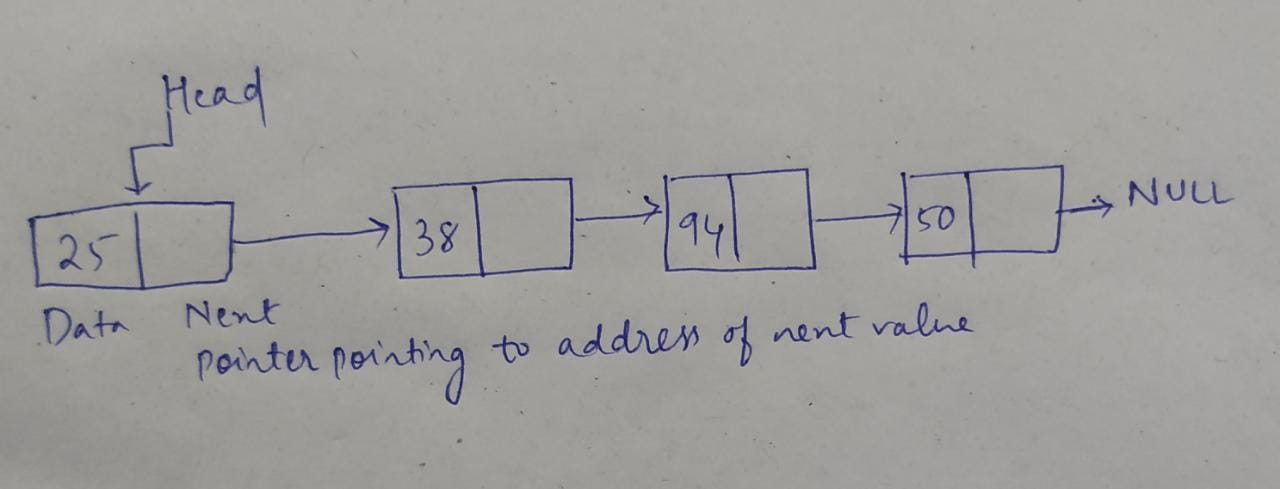 Head
25 38 94 50 NULL
Data Next
pointer pointing to address of next value